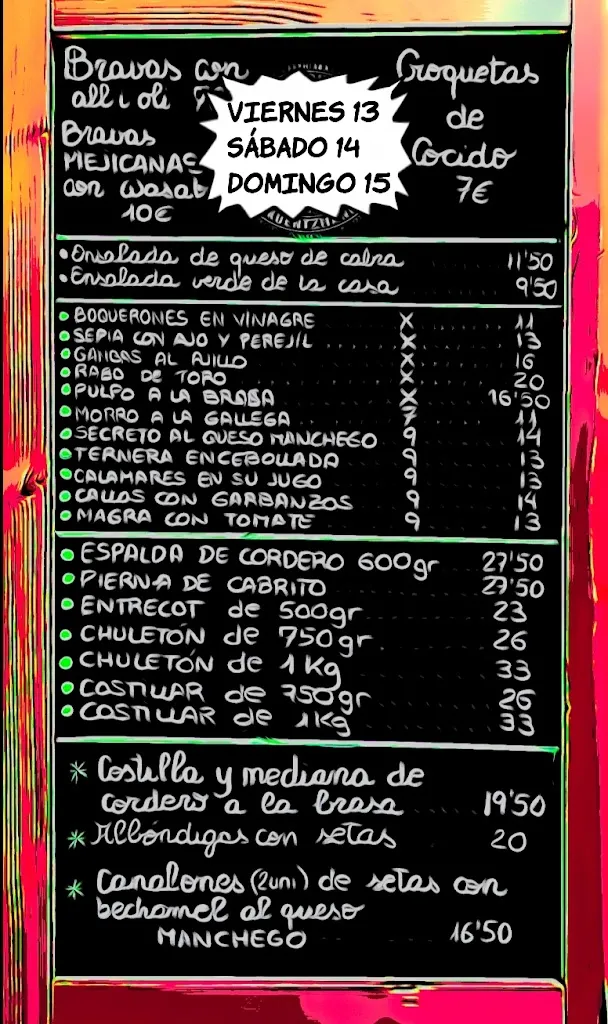 Bravas con
all i oli
Bravas
MEJICANAS
con wasabi
10€
VIERNES 13
SÁBADO 14
DOMINGO 15
Croquetas
de
Cocido
7€
• Ensalada de queso de cabra 11'50
• Ensalada verde de la casa 9'50
• BOQUERONES EN VINAGRE X 11
• SEPIA CON AJO Y PEREJIL X 13
• GAMBAS AL AJILLO X 16
• RABO DE TORO X 20
• PULPO A LA BRASA X 16'50
• MORRO A LA GALLEGA 7 11
• SECRETO AL QUESO MANCHEGO 9 14
• TERNERA ENCEBOLLADA 9 13
• CALAMARES EN SU JUGO 9 13
• CALLOS CON GARBANZOS 9 14
• MAGRA CON TOMATE 9 13
• ESPALDA DE CORDERO 600gr 27'50
• PIERNA DE CABRITO 27'50
• ENTRECOT de 500gr 23
• CHULETÓN de 750gr 26
• CHULETÓN de 1Kg 33
• COSTILLAR de 750gr 26
• COSTILLAR de 1Kg 33
* Costilla y mediana de
cordero a la brasa 19'50
* Albóndigas con setas 20
* Canalones (2uni) de setas con
bechamel al queso
MANCHEGO 16'50